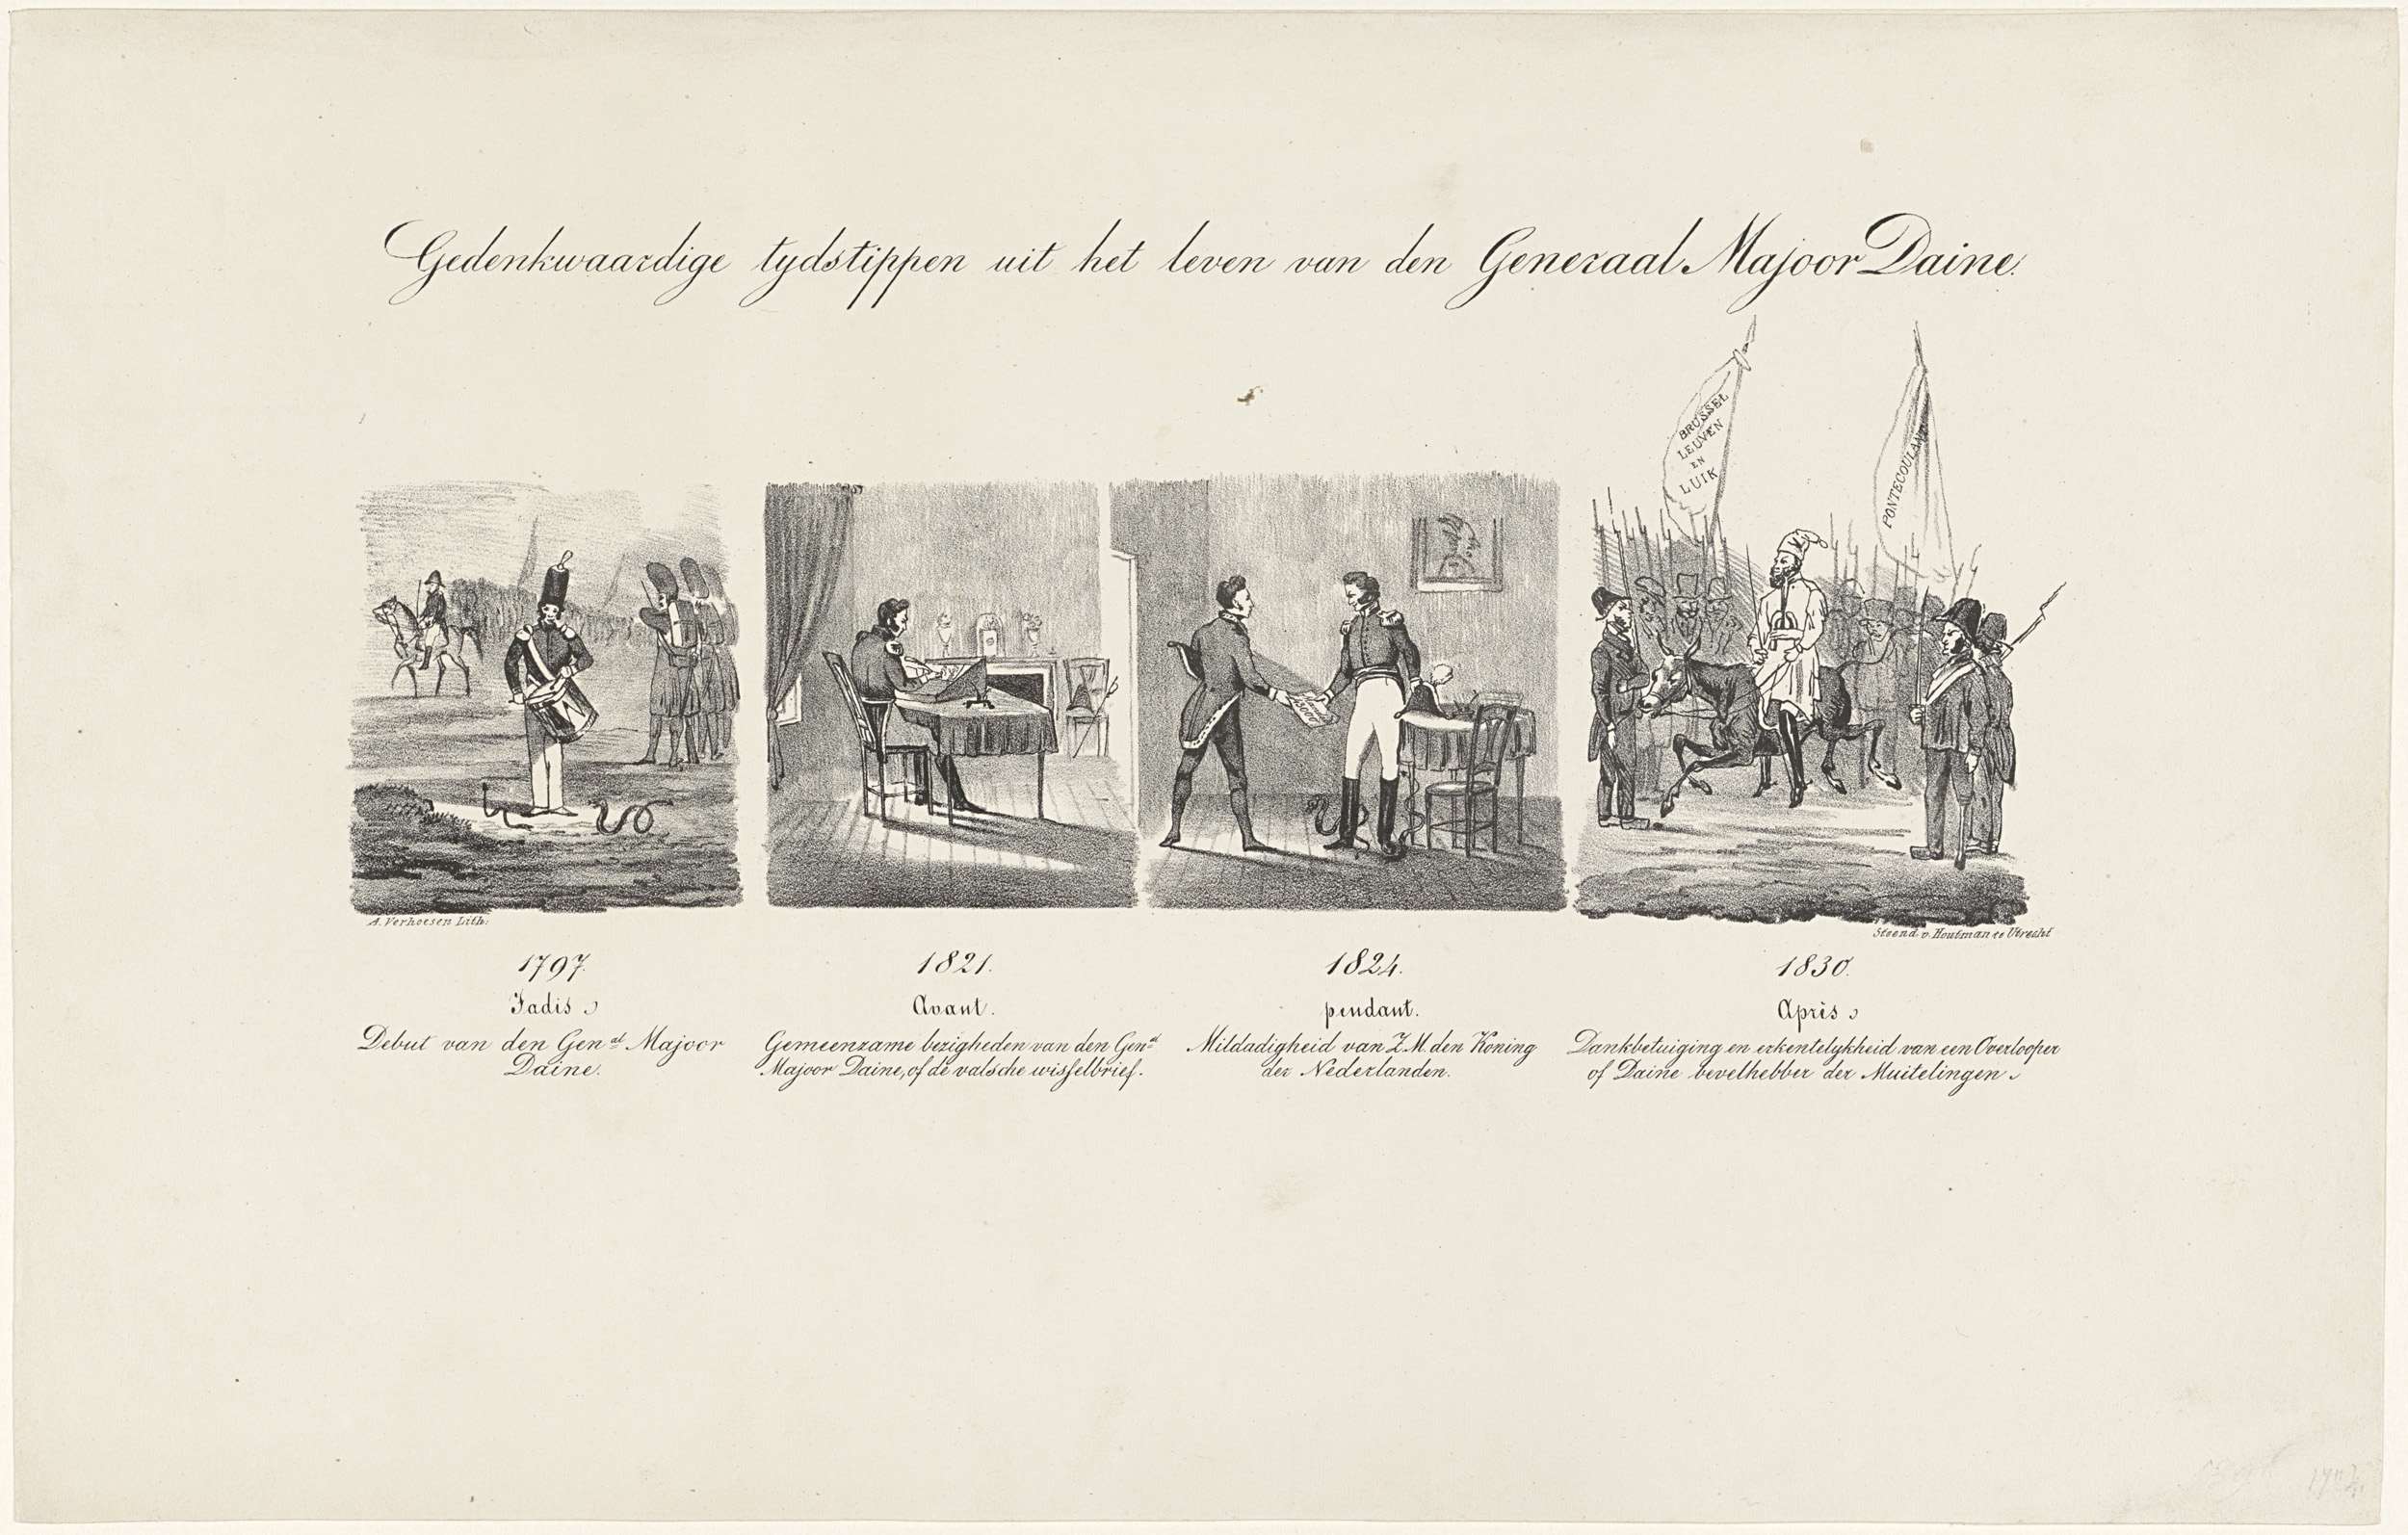 Gedenkwaardige tydstippen uit het leven van den Generaal Majoor Daine.
BRUSSEL
LEUVEN
EN
LUIK
PONTECOULANT
A. Verhoesen Lith:
Steend. v. Houtman te Utrecht
1797.
Jadis
Debut van den Gen.al Majoor
Daine.
1821.
Avant.
Gemeenzame bezigheden van den Gen.al
Majoor Daine, of de valsche wisselbrief.
1824.
pendant.
Mildadigheid van Z.M. den Koning
der Nederlanden.
1830.
Après
Dankbetuiging en erkentelykheid van een Overlooper
of Daine bevelhebber der Muitelingen